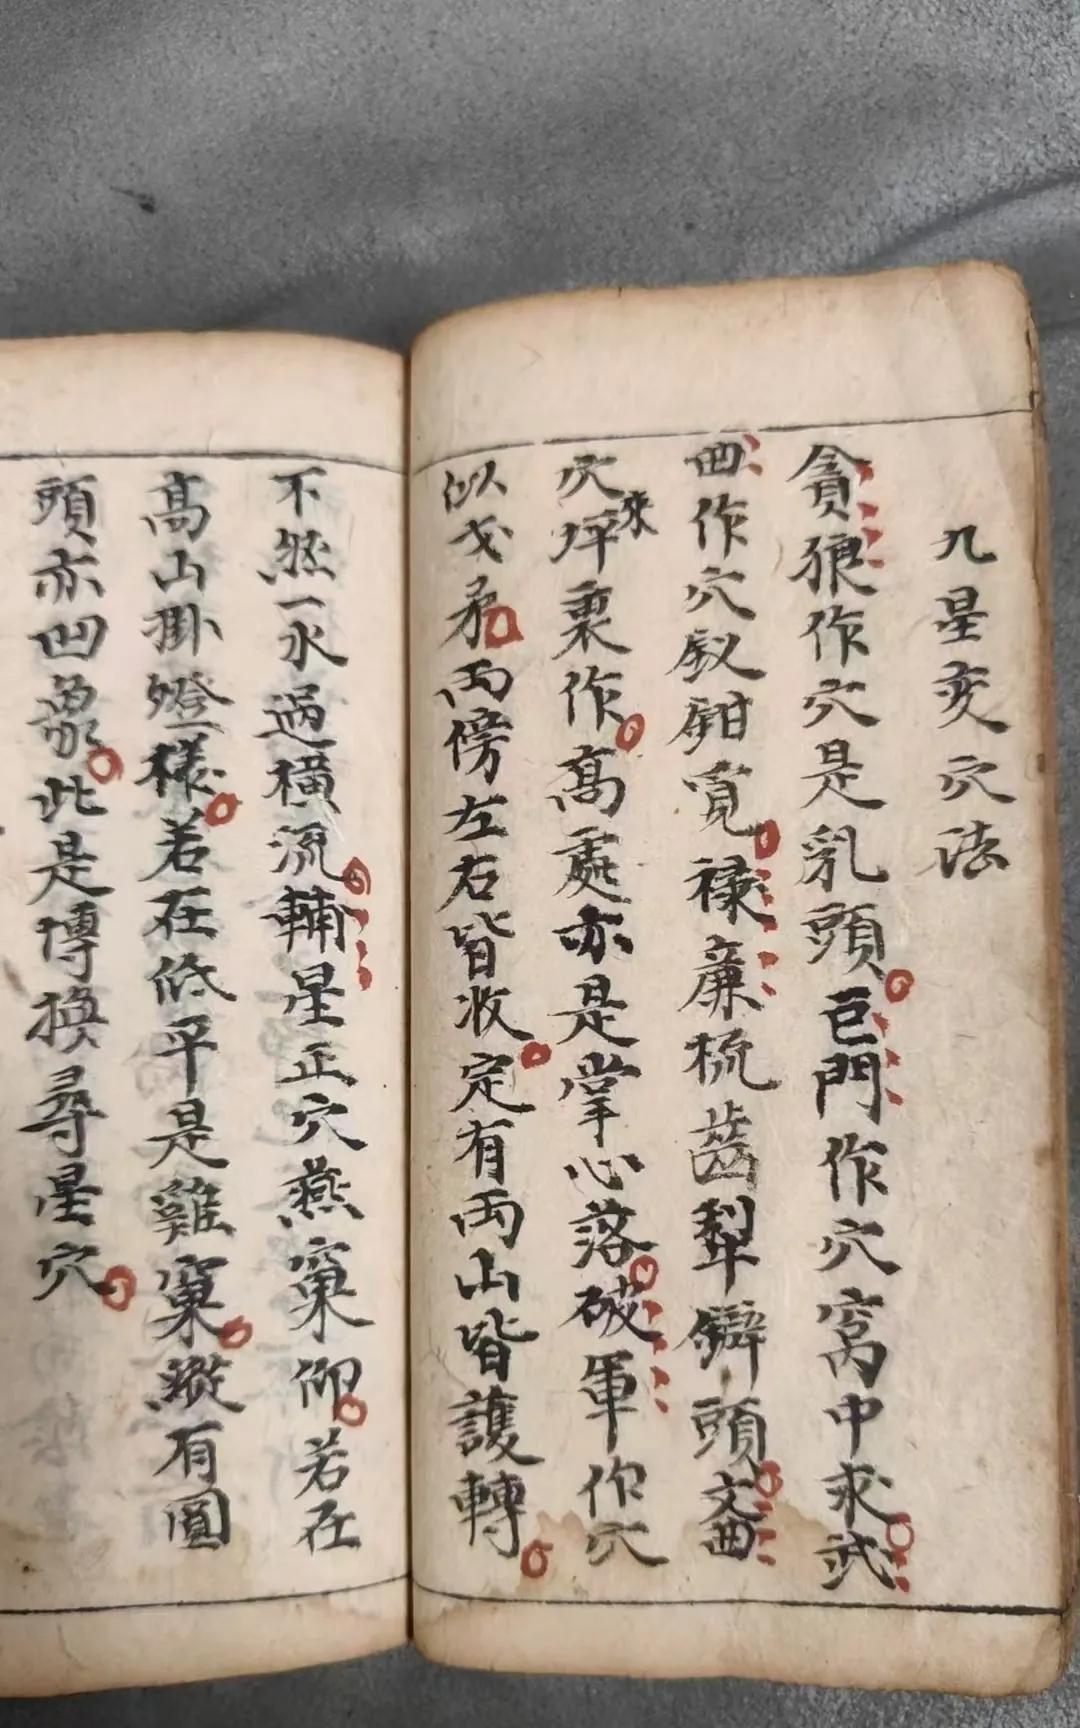 九星变穴法
貪狼作穴是乳頭巨門作穴窩中求武
曲作穴釵鉗覓禄廉梳齒犁鐴頭文曲
穴坪來裏作高處亦是掌心落破軍作穴
似戈矛兩傍左右皆收定有兩山皆護轉
不然一水過橫流輔星正穴燕窠仰若在
高山掛燈樣若在低平是雞窠縱有圓
頭亦凹象此是博換尋星穴